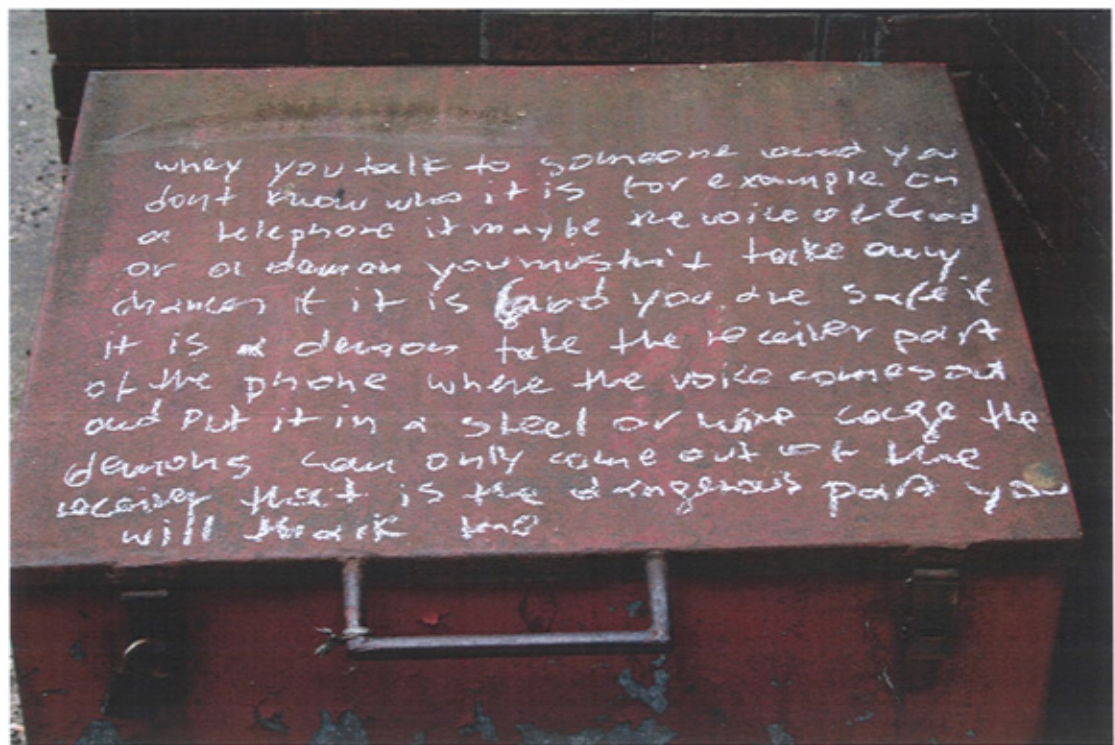 when you talk to someone and you
dont know who it is for example on
a telephone it maybe the voice of God
or a demon you mustn't take any
chances if it is God you are safe if
it is a demon take the receiver part
of the phone where the voice comes out
and put it in a steel or wire cage the
demons can only come out of the
receiver that is the dangerous part you
will thank me